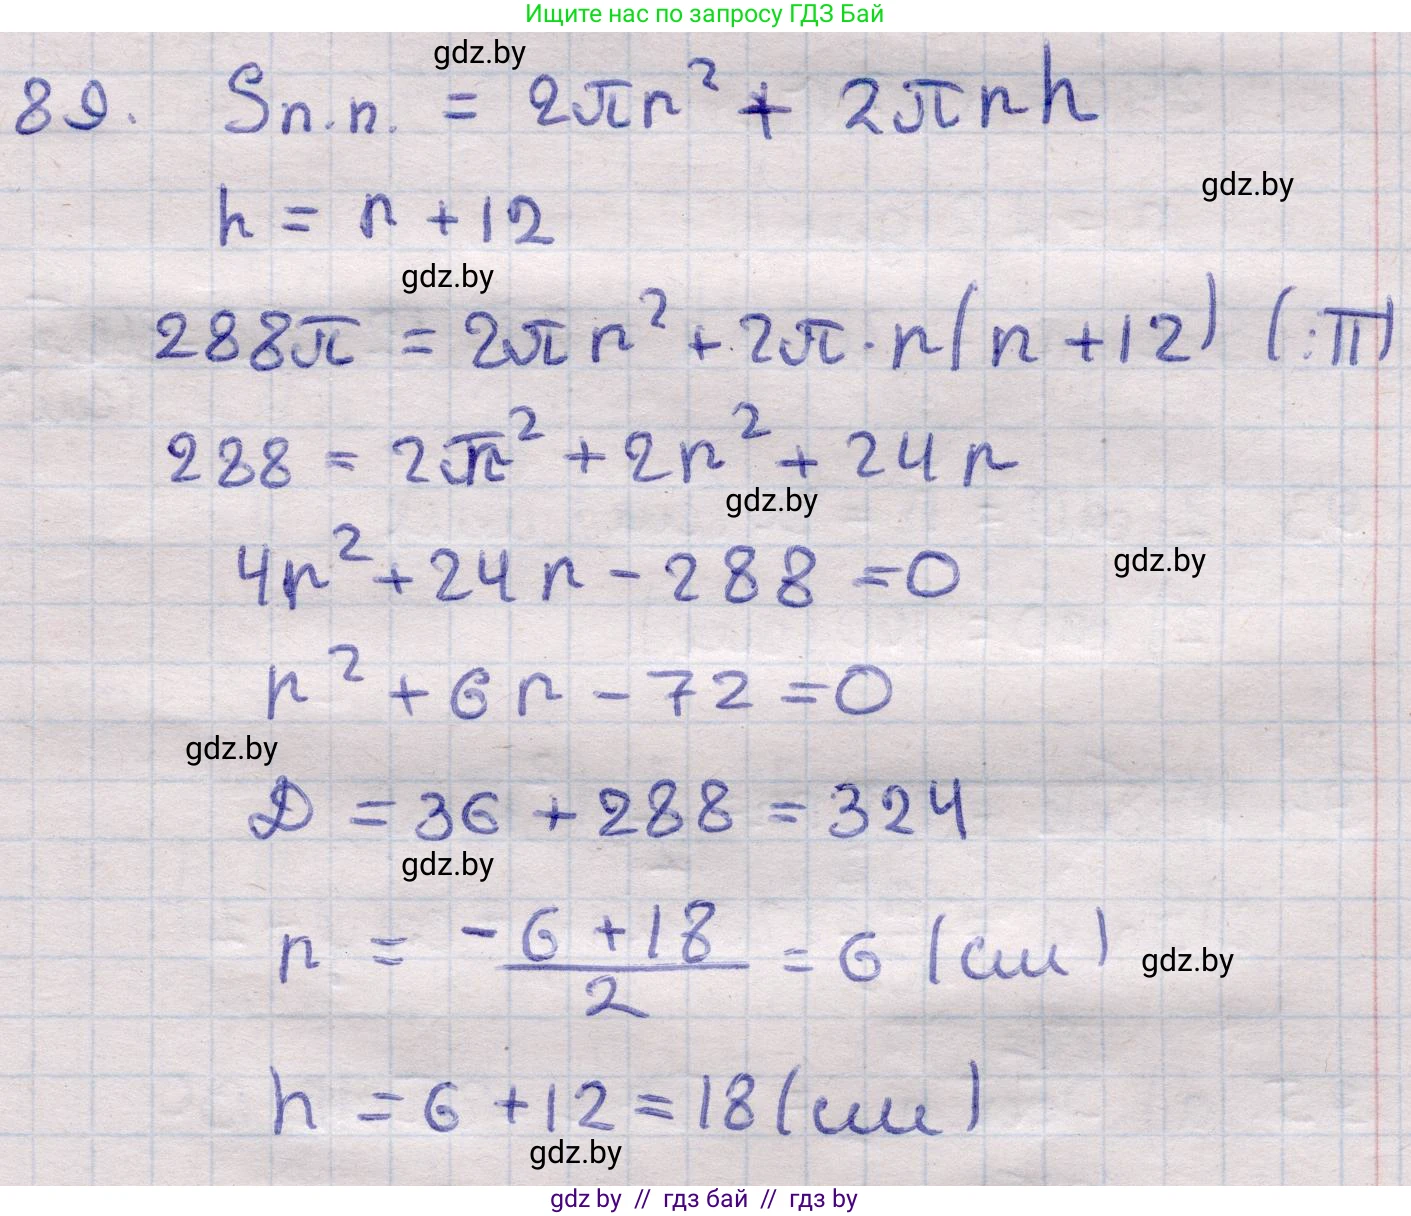 Ищите нас по запросу ГДЗ Бай
gdz.by
89. Sп.п. = 2πr² + 2πrh
gdz.by
h = r + 12
gdz.by
288π = 2πr² + 2π · r(r + 12) (:π)
288 = 2r² + 2r² + 24r
gdz.by
4r² + 24r - 288 = 0
gdz.by
r² + 6r - 72 = 0
gdz.by
D = 36 + 288 = 324
gdz.by
r = (-6 + 18)/2 = 6 (см)
gdz.by
h = 6 + 12 = 18 (см)
gdz.by
gdz by // гдз бай // гдз by